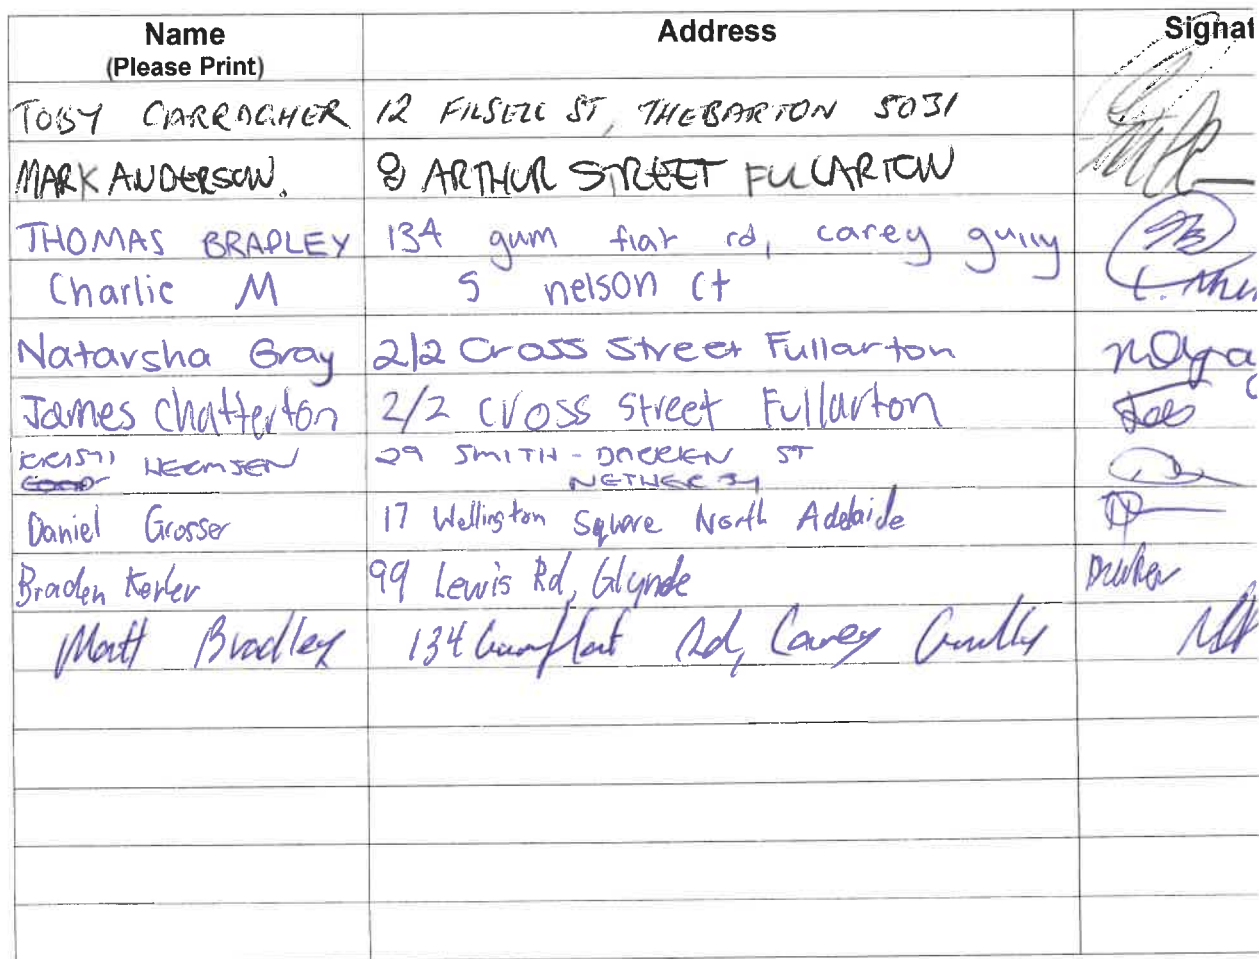 Name Address Signat
(Please Print)
TOBY CARRAGHER 12 FILSELL ST, THEBARTON 5031
MARK ANDERSON. 8 ARTHUR STREET FULLARTON
THOMAS BRADLEY 134 gum flat rd, carey gully
Charlie M 5 nelson Ct
Natarsha Gray 2/2 Cross Street Fullarton
James Chatterton 2/2 Cross Street Fullarton
KRISTI HERMSEN 29 SMITH-DORRIEN ST
NETHERBY
Daniel Grosser 17 Wellington Square North Adelaide
Braden 99 Lewis Rd, Glynde
Matt Bradley 134 Gumflat Rd, Carey Gully